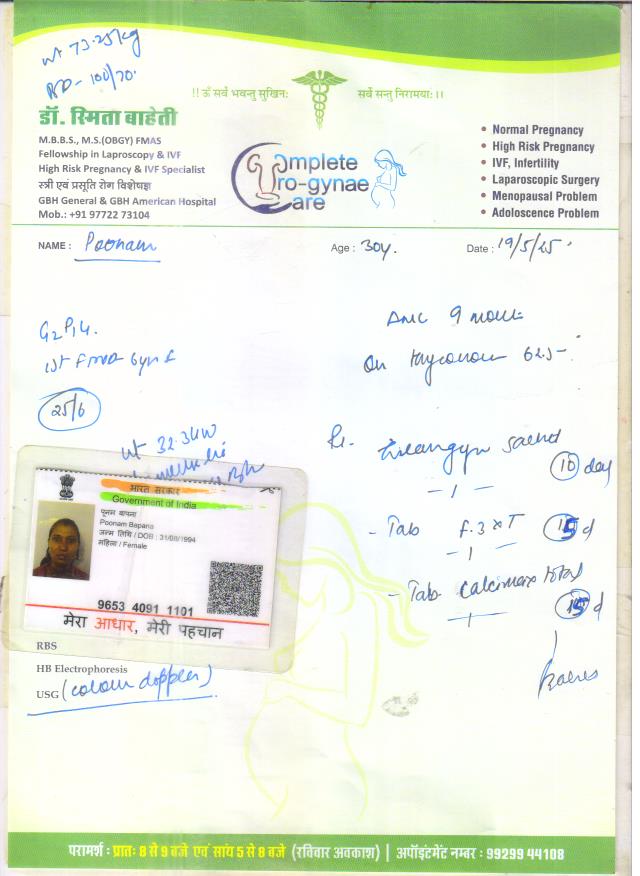 wt 73.25kg
BP- 100/70.
!! ॐ सर्वे भवन्तु सुखिनः सर्वे सन्तु निरामयाः ।।
डॉ. स्मिता बाहेती
M.B.B.S., M.S.(OBGY) FMAS
Fellowship in Laproscopy & IVF
High Risk Pregnancy & IVF Specialist
स्त्री एवं प्रसूति रोग विशेषज्ञ
GBH General & GBH American Hospital
Mob.: +91 97722 73104
Complete
Uro-gynae
Care
• Normal Pregnancy
• High Risk Pregnancy
• IVF, Infertility
• Laparoscopic Surgery
• Menopausal Problem
• Adoloscence Problem
NAME : Poonam Age : 30y. Date : 19/5/25
G2P1L
1st
25/6
ANC 9 month
On 62.5
wt 32.3
Rx
sachet 10 day
- 1 -
- Tab F.3 x T 15 d
- 1 -
- Tab Calcimax total 15 d
- 1 -
भारत सरकार
Government of India
पूनम बापना
Poonam Bapana
जन्म तिथि / DOB : 31/08/1994
महिला / Female
9653 4091 1101
मेरा आधार, मेरी पहचान
RBS
HB Electrophoresis
USG (colour doppler)
परामर्श : प्रातः 8 से 9 बजे एवं सांय 5 से 8 बजे (रविवार अवकाश) | अपॉइंटमेंट नम्बर : 99299 44108